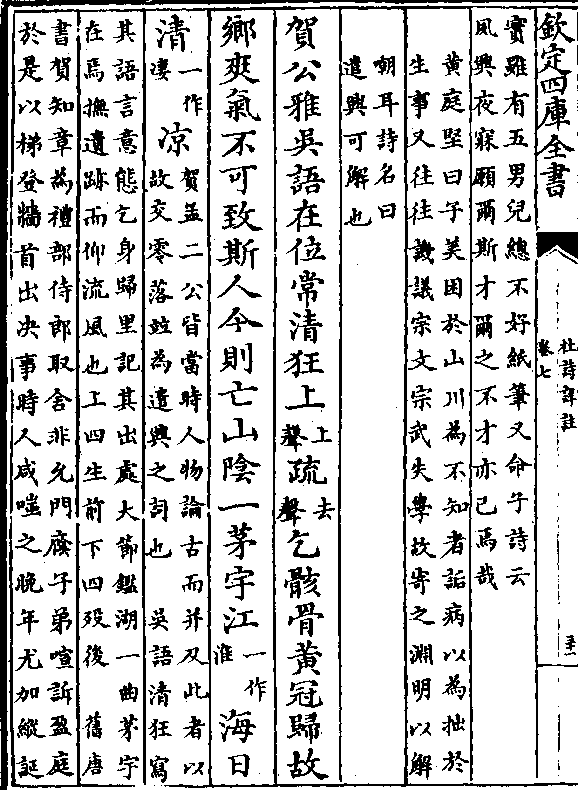 欽定四庫全書
杜詩詳註
卷七
實雖有五男兒總不好紙筆又命子詩云
夙興夜寐願爾斯才爾之不才亦已焉哉
黃庭堅曰子美困於山川為不知者詬病以為拙於
生事又往往譏議宗文宗武失學故寄之淵明以解
嘲耳詩名曰
遣興可解也
賀公雅吳語在位常清狂上上聲疏去聲乞骸骨黃冠歸故
鄉爽氣不可致斯人今則亡山陰一茅宇江一作淮海日
清一作凄凉賀孟二公皆當時人物論古而并及此者以
故交零落竝為遣興之詞也 吳語清狂寫
其語言意態乞身歸里記其出處大節鑑湖一曲茅宇
在焉撫遺跡而仰流風也上四生前下四歿後 舊唐
書賀知章為禮部侍郎取舍非允門廕子弟喧訴盈庭
於是以梯登牆首出決事時人咸嗤之晚年尤加縱誕